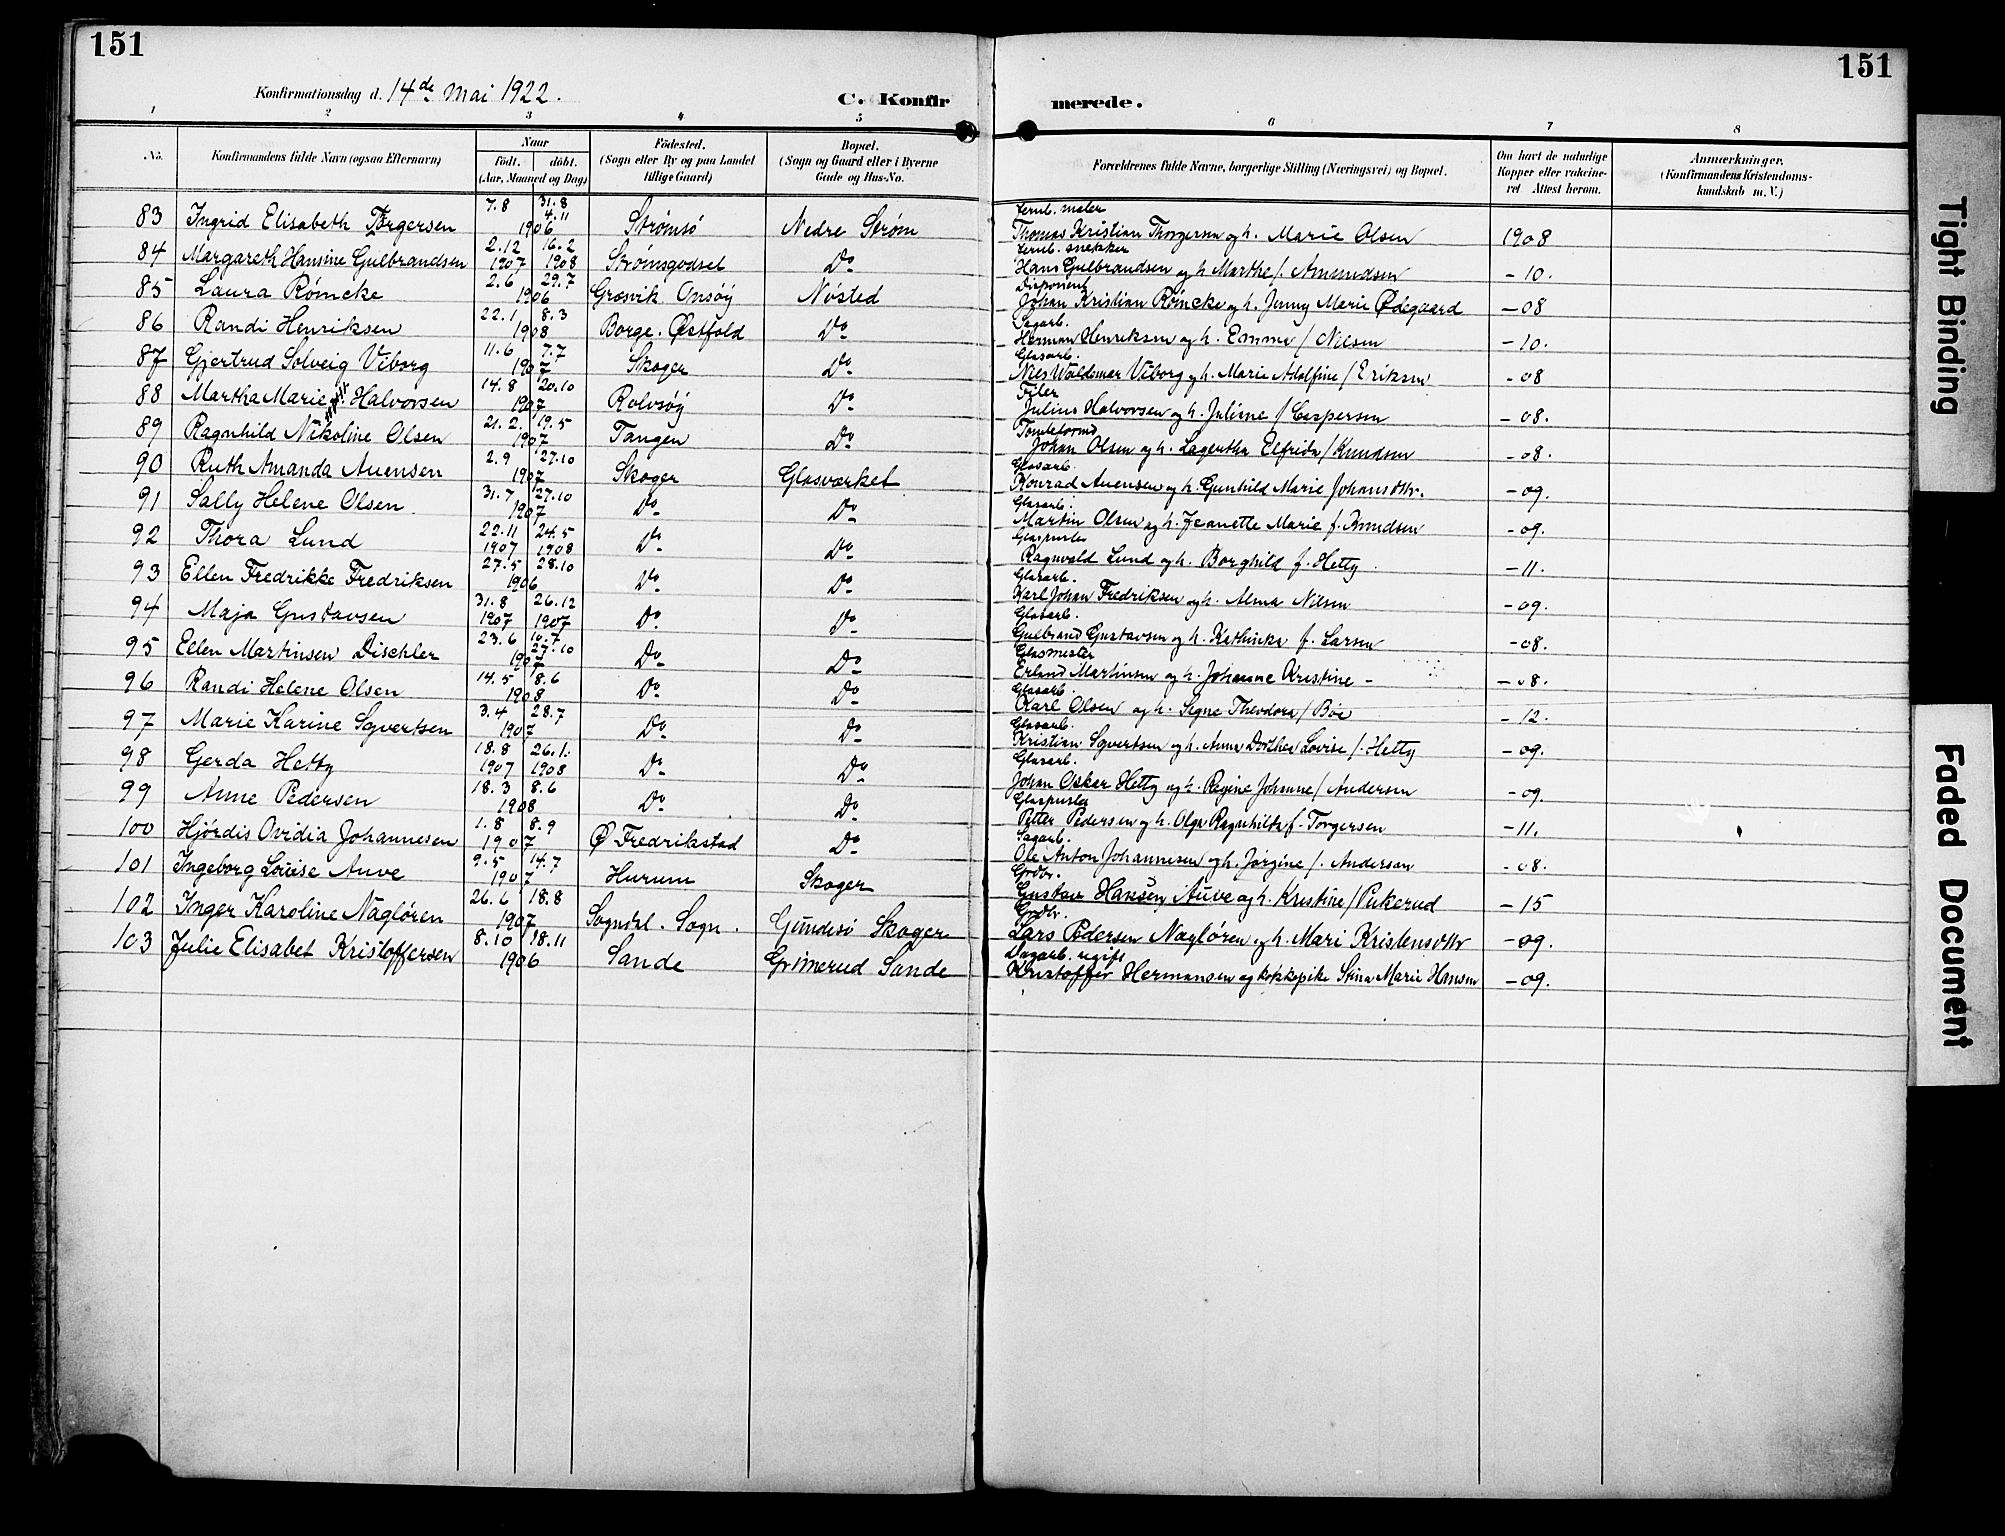 151
151
Konfirmationsdag d. 14de Mai 1922.
C. Konfir merede.
1 2 3 4 5 6 7 8
No.
Konfirmandens fulde Navn (ogsaa Efternavn)
Naar
født. døbt.
(Aar, Maaned og Dag)
Fødested.
(Sogn eller By og paa Landet
tillige Gaard)
Bopæl.
(Sogn og Gaard eller i Byerne
Gade og Hus-No.
Forældrenes fulde Navne, borgerlige Stilling (Næringsvei) og Bopæl.
Om havt de naturlige
Kopper eller vakcine-
ret Attest herom.
Anmærkninger.
(Konfirmandens Kristendoms-
kundskab m. V.)
83 Ingrid Elisabeth Torgersen 7.8 31.8 4.11 1906 Strømsø Nedre Strøm Jernb. maler Thomas Kristian Thorgersen og h. Marie Olsen 1908
84 Margareth Hansine Gulbrandsen 2.12 1907 16.2 1908 Strømsgodset Do Jernb. snekker Hans Gulbrandsen og h Marthe f. Amundsen - 10.
85 Laura Römcke 2.6 29.7 1906 Græsvik Onsöy Nøsted Disponent Johan Kristian Römcke og h. Jenny Marie Ødegaard - 08
86 Randi Henriksen 22.1 8.3 1908 Borge. Østfold Do Sagarb. Herman Henriksen og h. Emma / Nilsen - 10.
87 Gjertrud Solveig Viborg 11.6 7.7 1907 Skoger Do Glasarb. Nils Waldemar Viborg og h. Marie Adolfine / Eriksen - 08
88 Martha Marie Halvorsen 14.8 20.10 1907 Rolvsöy Do Filer Julius Halvorsen og h. Juline / Caspersen - 08.
89 Ragnhild Nikoline Olsen 21.2. 19.5 1907 Tangen Do Tomteformd Johan Olsen og h. Lagertha Elfrida / Knudsen - 08.
90 Ruth Amanda Auensen 2.9 27.10 1907 Skoger Glasværket Glasarb. Konrad Auensen og h. Gunhild Marie Johansdtr. - 09.
91 Sally Helene Olsen 31.7 27.10 1907 Do Do Glasarb. Martin Olsen og h. Jeanette Marie f. Knudsen - 09.
92 Thora Lund 22.11 1907 24.5 1908 Do Do Glaspuster Ragnvald Lund og h. Borghild f. Hetty - 11.
93 Ellen Fredrikke Fredriksen 27.5 28.10 1906 Do Do Glasarb. Karl Johan Fredriksen og h. Alma Nilsen - 09.
94 Maja Gustavsen 31.8 1907 26.12 1907 Do Do Glasarb. Gulbrand Gustavsen og h. Kathinka f. Larsen - 08.
95 Ellen Martinsen Dischler 23.6 10.7 27.10 1907 Do Do Glasmester Erland Martinsen og h. Johanne Kristine - - 08.
96 Randi Helene Olsen 14.5 8.6 1908 Do Do Glasarb. Karl Olsen og h. Signe Theodora / Böe - 12.
97 Marie Karine Syvertsen 3.4 28.7 1907 Do Do Glasarb. Kristian Syvertsen og h. Anna Dorthea Lovise /. Hetty - 09.
98 Gerda Hetty 18.8 1907 26.1. 1908 Do Do Glasarb. Johan Oskar Hetty og h. Regine Johanne / Andersen - 09.
99 Anne Pedersen 18.3 8.6 1908 Do Do Glaspuster Petter Pedersen og h. Olga Ragnhilda f. Torgersen - 11.
100 Hjördis Ovidia Johannesen 1.8 8.9 1907 Ø Fredrikstad Do Sagarb. Ole Anton Johannesen og h. Jörgine /. Anderson - 08.
101 Ingeborg Louise Auve 9.5 14.7 1907 Hurum Skoger Grdbr. Gustav Hansen Auve og h. Kristine / Pukerud - 15
102 Inger Karoline Naglören 26.6 18.8 1907 Sogndal. Sogn. Gundesö Skoger Grdbr. Lars Pedersen Naglören og h. Mari Kristensdtr - 09.
103 Julie Elisabet Kristoffersen 8.10 18.11 1906 Sande Grimerud Sande Dagarb. ugift Kristoffer Hermansen og kokkepike Stina Marie Hansen - 09.
Tight Binding
Faded Document